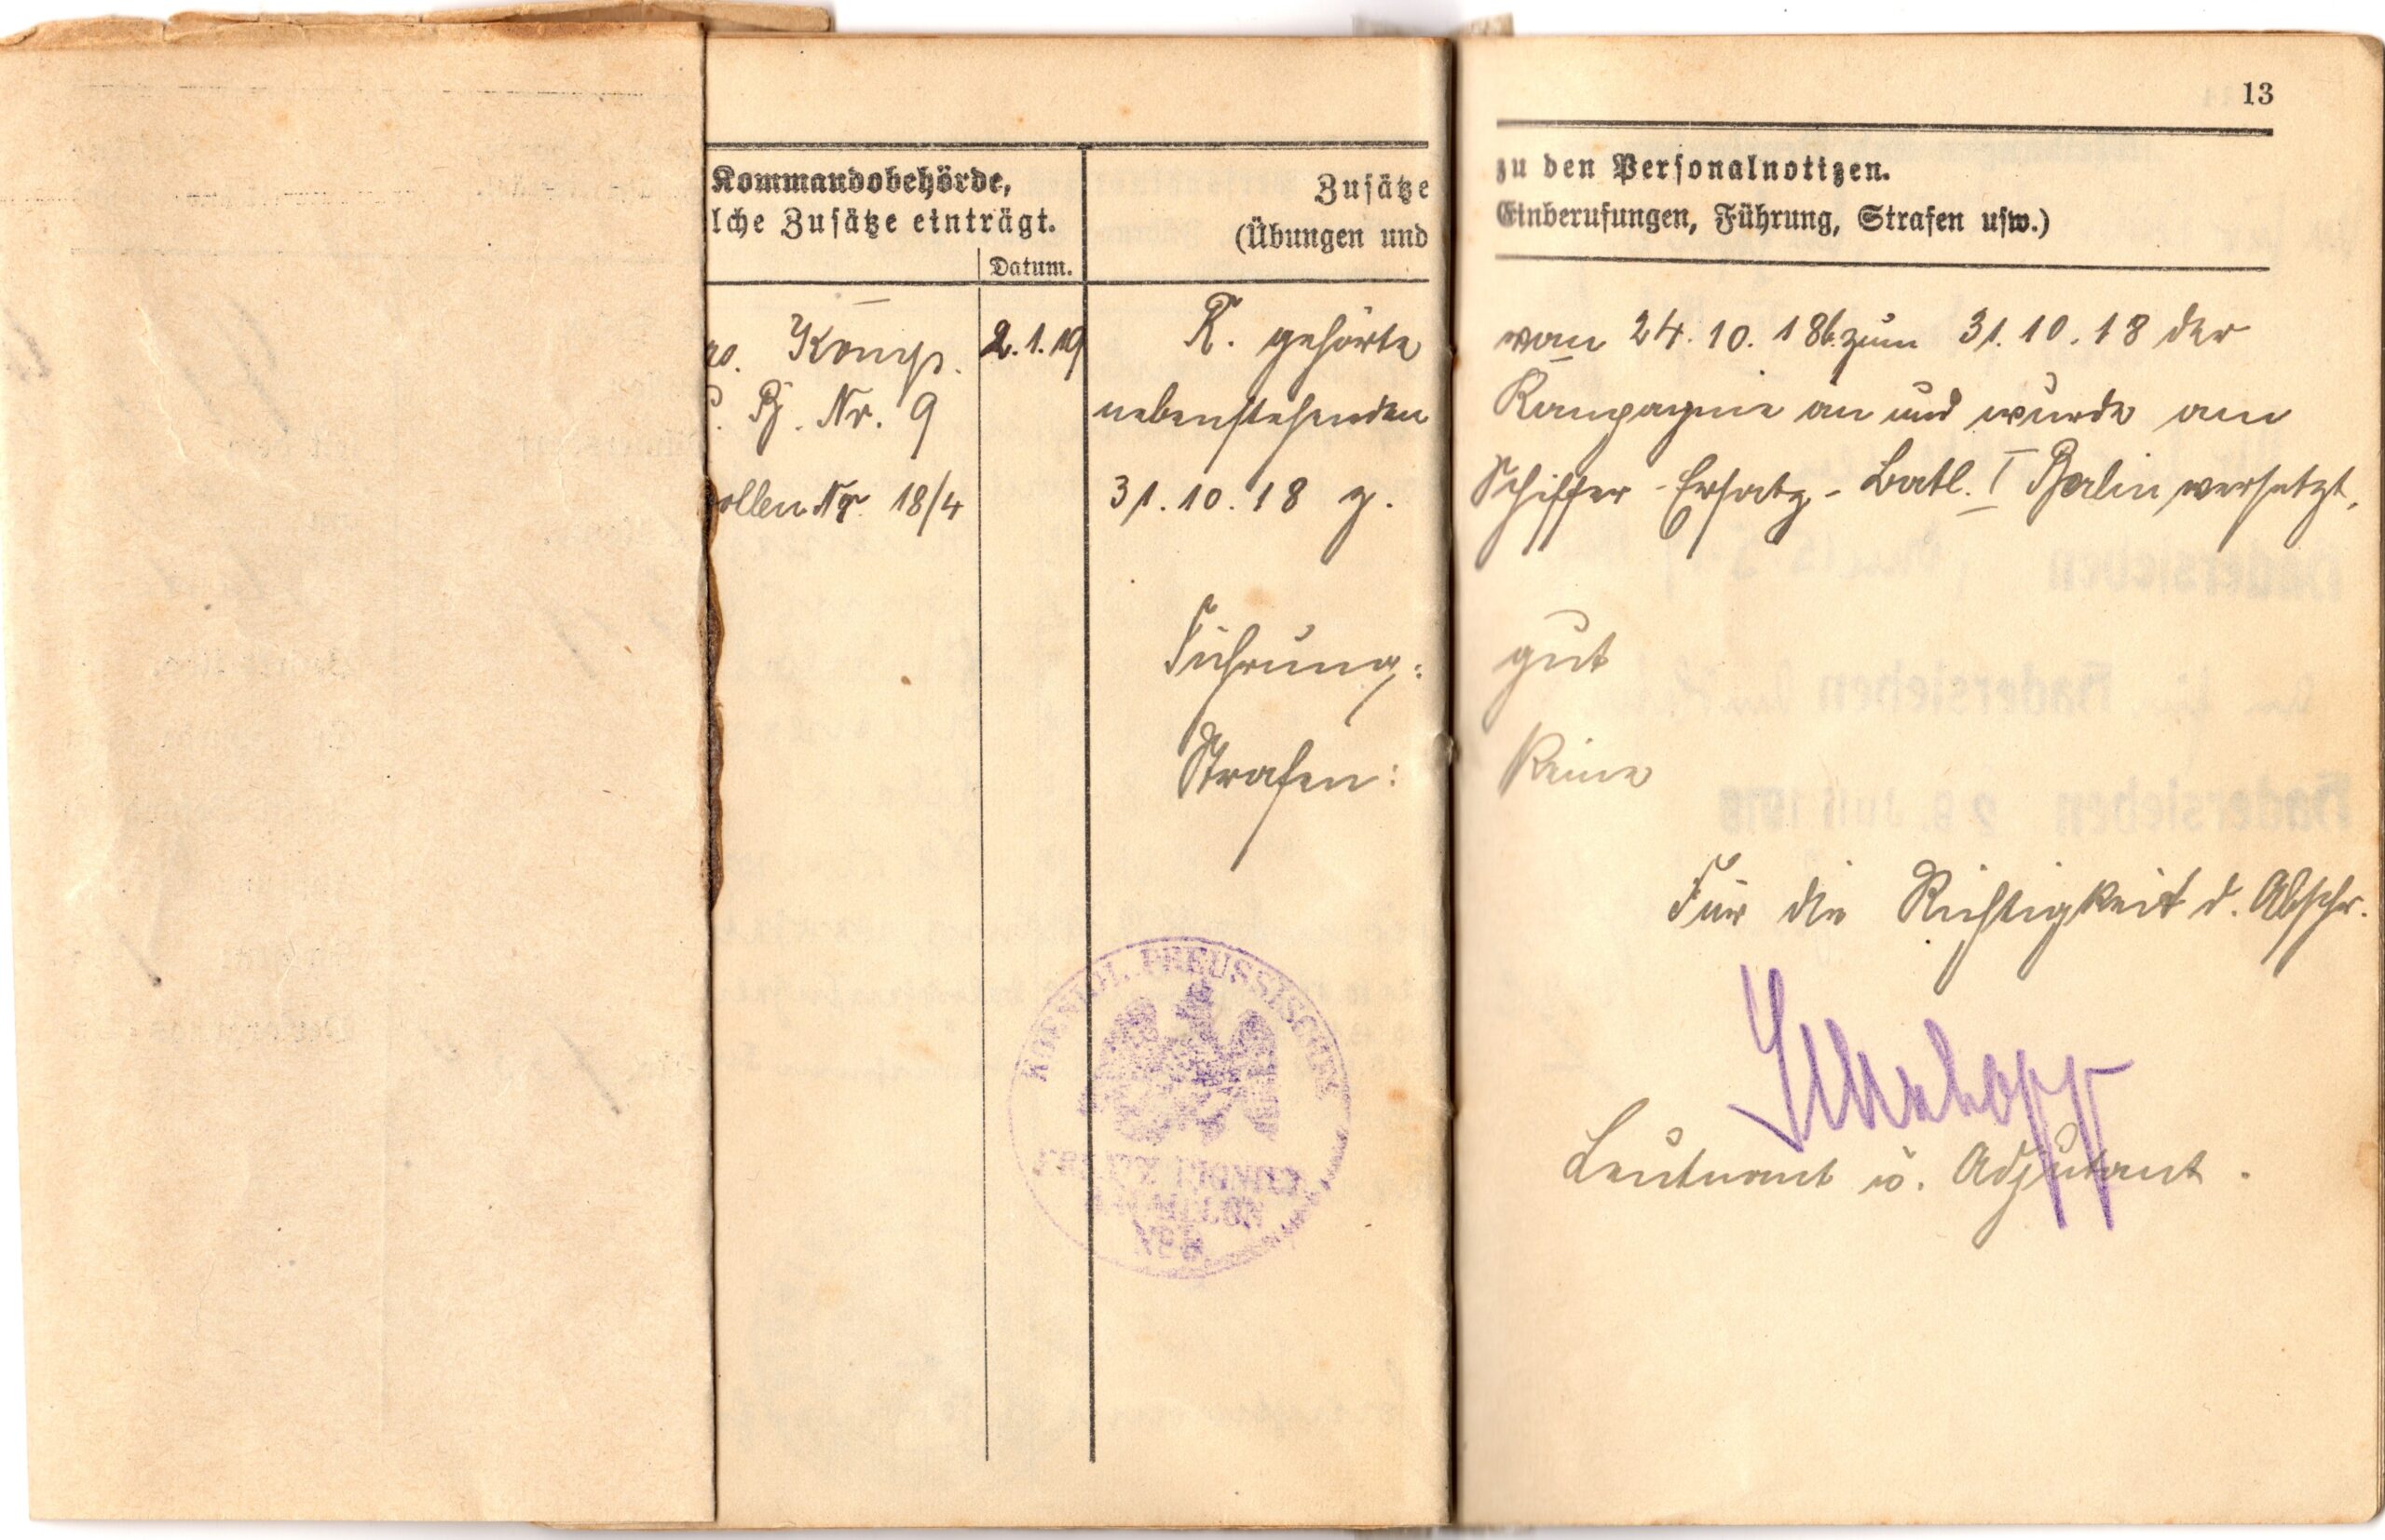 13
Kommandobehörde,
lche Zusätze einträgt.
Datum.
Zusätze
(Übungen und
zu den Personalnotizen.
Einberufungen, Führung, Strafen usw.)
Komp. 2.1.19
Nr. 9
ollen Nr. 18/4
K. gehörte vom 24.10.18 b. zum 31.10.18 der
nebenstehenden Kompagnie an und wurde am
31.10.18 z. Schiffer-Ersatz-Batl. I Berlin versetzt.
Führung: gut
Strafen: Keine
Für die Richtigkeit d. Abschr.
Leutnant u. Adjutant.
KOENIGL. PREUSSISCHES